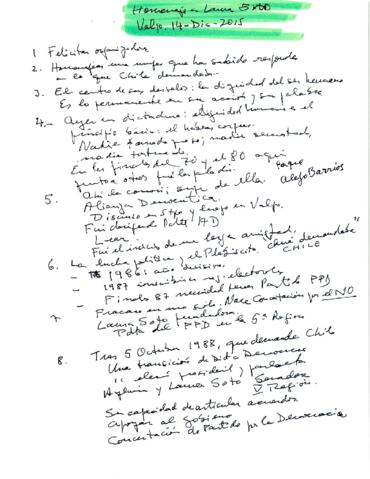 Homenaje a Laura Soto
Valpo. 14-Dic-2015
1 Felicitar organizadores
2. Homenajear una mujer que ha sabido responder
a lo que Chile demandaba.
3. El centro de sus desvelos: la dignidad del ser humano
Es lo permanente en su acción y su palabra
4.- Ayer en dictadura: dignidad humana es el
principio básico: el habeas corpus.
Nadie
nadie torturado.
En los finales del 70 y el 80 aquí
junto a otros
5. Ahí la conocí; supe de ella. Alejo Barrios
Parque
Alianza Democrática.
Discurso en Stgo y luego en Valpo.
Fui
Leer
Fui el inicio de una larga amistad.
6. La lucha política y el Plebiscito "qué demandaba"
CHILE
- 1986: año decisivo.
- 1987 inscripción reg. electorales
- Finales 87 necesidad Partido PPD
- Fracaso en uno solo. Nace Concertación por el NO
7. Laura Soto fundadora
Pdta del PPD en la 5ª Región
8. Tras 5 Octubre 1988, qué demanda Chile
Una transición de Dict a Democracia
" elecc presidencial y parlamento
Aylwin y Laura Soto Senadora
V Región.
Su capacidad de articular acuerdos
Apoyar al gobierno
Concertación de Partidos por la Democracia